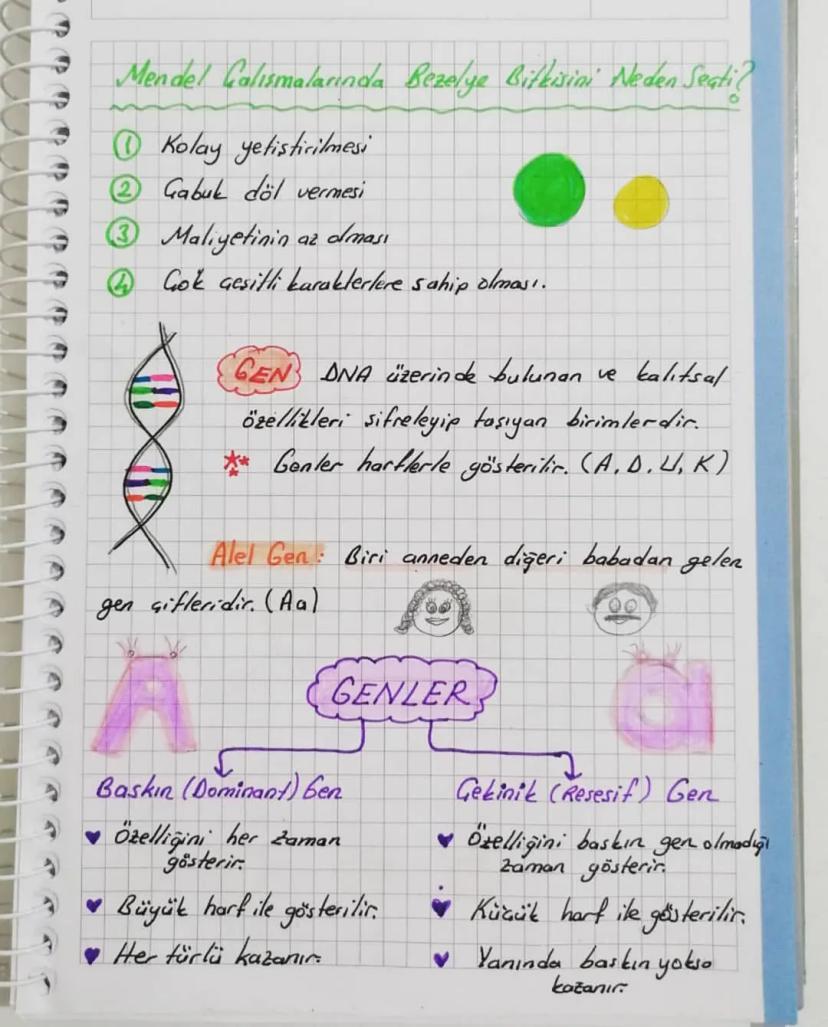 Mendel Çalışmalarında Bezelye Bitkisini Neden Seçti?
1 Kolay yetiştirilmesi
2 Çabuk döl vermesi
3 Maliyetinin az olması
4 Çok çeşitli karakterlere sahip olması.
GEN DNA üzerinde bulunan ve kalıtsal
özellikleri şifreleyip taşıyan birimlerdir.
*** Genler harflerle gösterilir. (A, D, U, K)
Alel Gen: Biri anneden diğeri babadan gelen
gen çiftleridir. (Aa)
A a
GENLER
Baskın (Dominant) Gen
♥ Özelliğini her zaman
gösterir.
♥ Büyük harf ile gösterilir.
♥ Her türlü kazanır.
Çekinik (Resesif) Gen
♥ Özelliğini baskın gen olmadığı
zaman gösterir.
♥ Küçük harf ile gösterilir.
♥ Yanında baskın yoksa
kazanır.